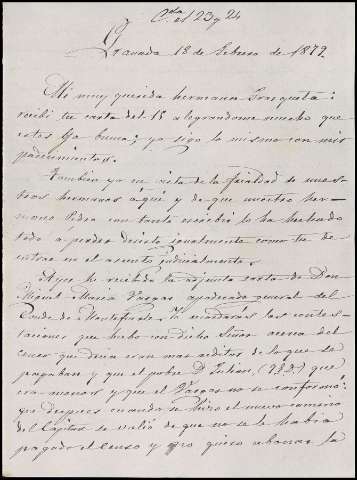 Cda el 23 y 24
Granada 18 de Febrero de 1879.
Mi muy querida hermana Frasquita:
recibí tu carta del 15 alegrandome mucho que
estes ya buena; yo sigo lo mismo con mis
padecimientos.
Tambien yo en vista de la frialdad de nues-
tros hermanos aqui y de que nuestro her-
mano con tanto escribir lo ha hechado
todo a perder desisto igualmente como tu de
entrar en el asunto judicialmente.
Ayer he recibido la adjunta carta de Don
Miguel Maria Vargas apoderado general del
Conde de Montefuerte. Tu recordarás las contes-
taciones que hubo con dicho Señor acerca del
censo que decia eran mas reditos de lo que se
pagaban y que el pobre D. Julian, (q.e.p.d.) que
era menos y que el Vargas no se conformó:
que despues cuando se hizo el nuevo camino
del se valió de que no se le habia
pagado el censo y quiso abonar la